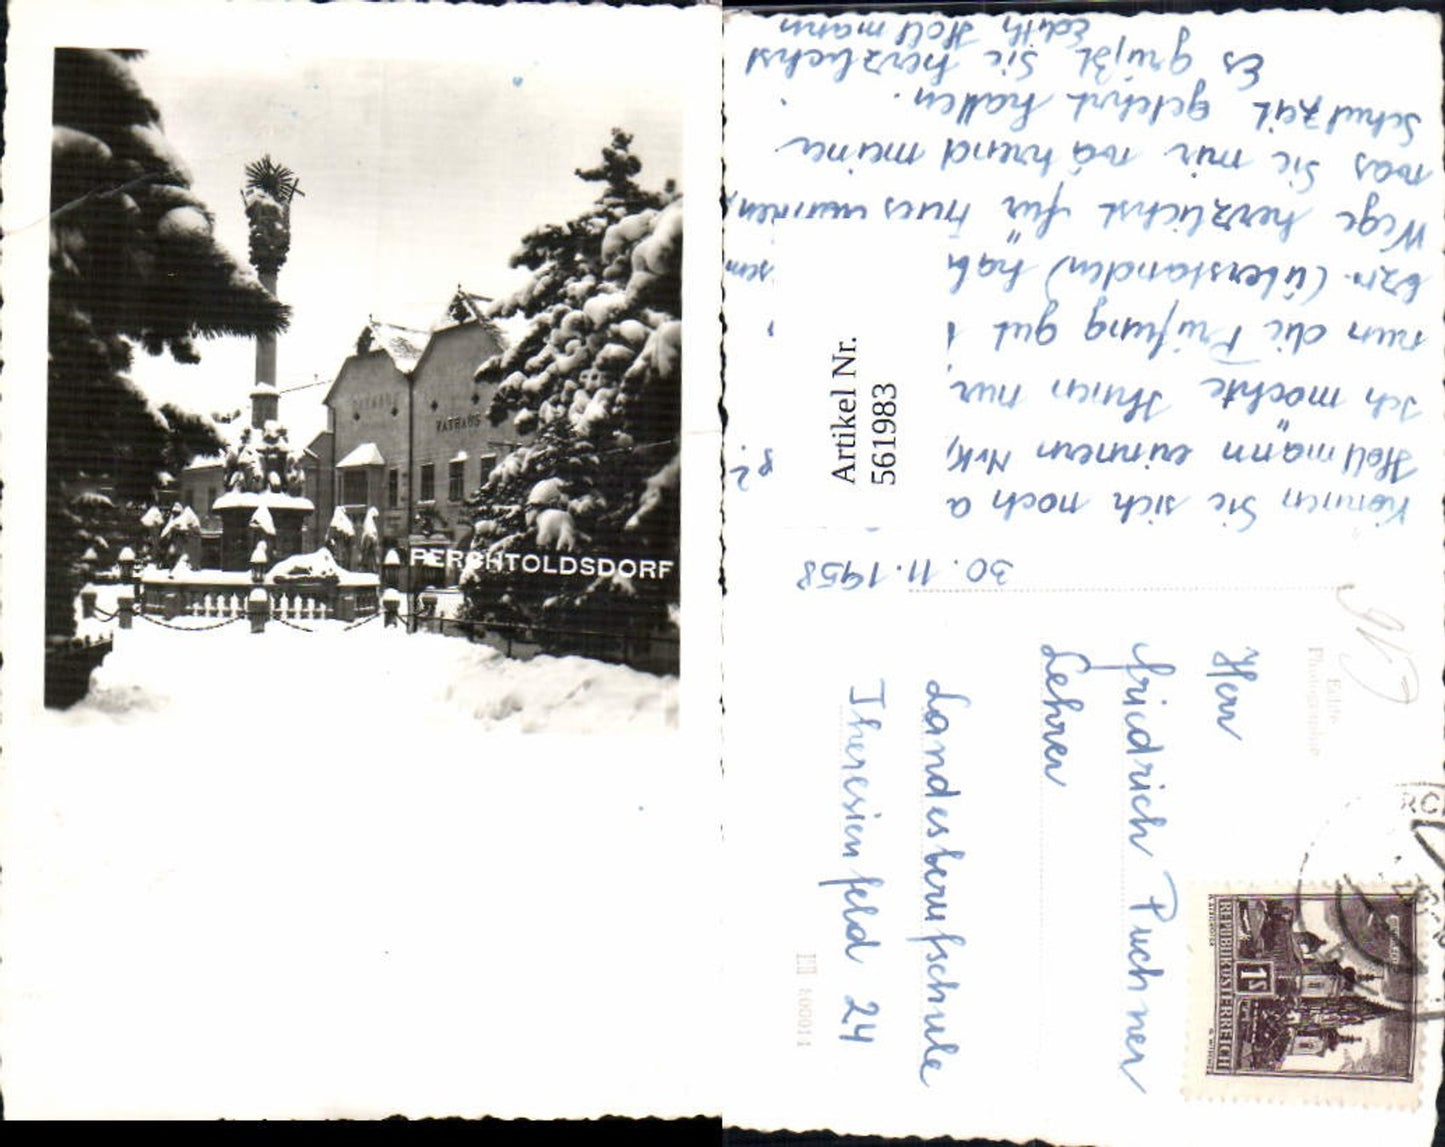 RATHAUS
PERCHTOLDSDORF
30. 11. 1958
Können Sie sich noch a
Hollmann erinnern
Ich möchte Ihnen nur
nun die Prüfung gut
bzw. (überstanden) hab
Wege herzlichst für
was Sie mir während meiner
Schulzeit gelehrt haben.
Es grüßt Sie herzlichst
Edith Hollmann
Artikel Nr.
561983
Herr
Friedrich Puchner
Lehrer
Landesberufsschule
Theresienfeld 24
Echte
Photographie
REPUBLIK ÖSTERREICH
1S